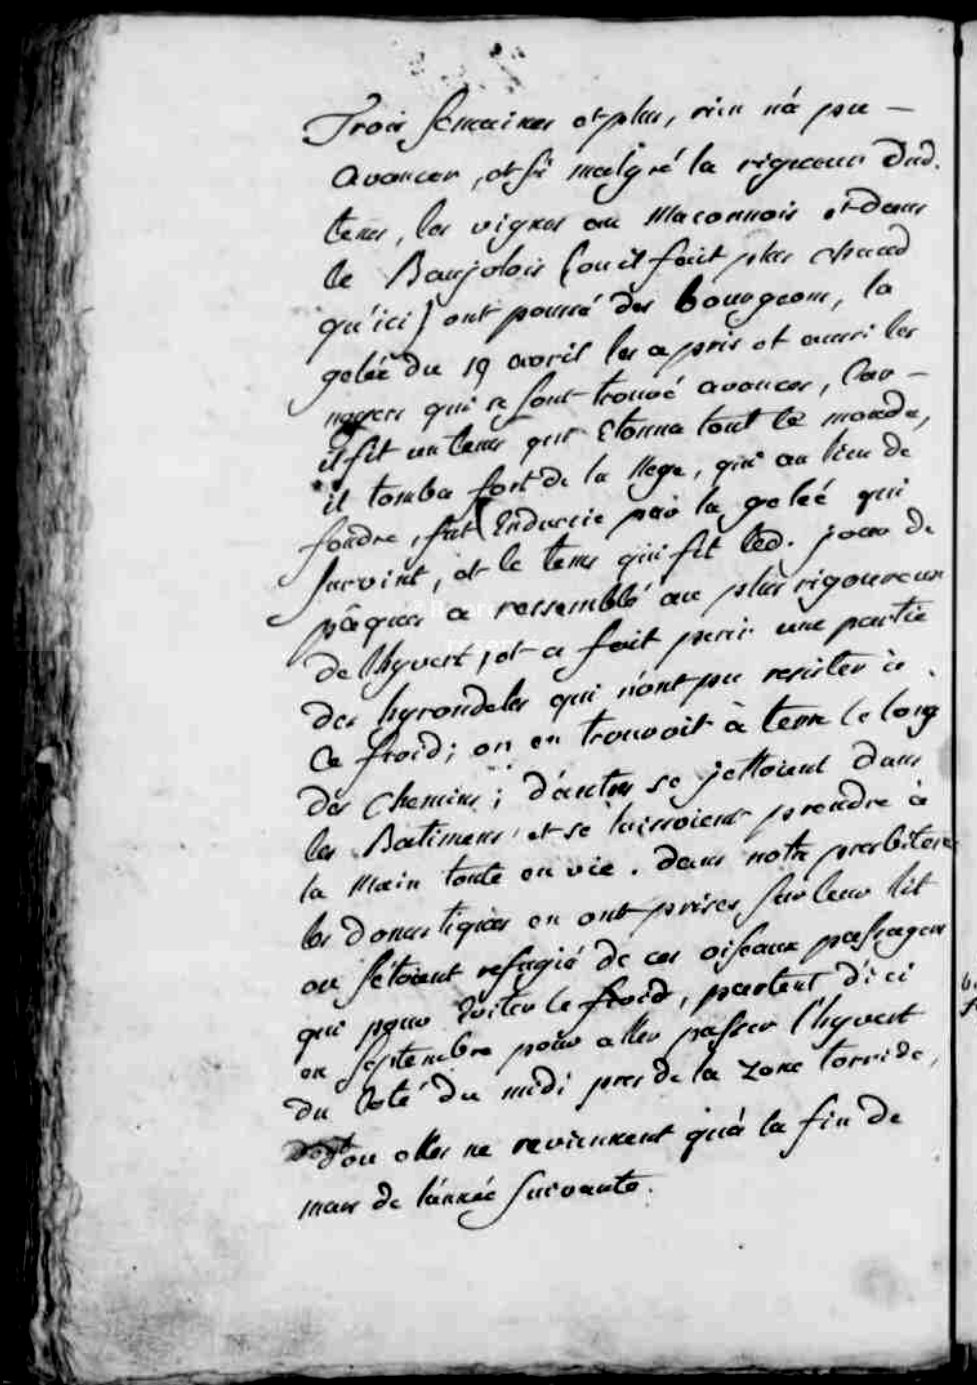 Trois semaines et plus, rien n'a pu
avancer, et si malgré la rigueur dud.
tems, les vignes au Maconnois et dans
le Baujolois (ou il fait plus chaud
qu'ici) ont poussé des bourgeons, la
gelée du 19 avril les a pris et aussi les
noyers qui se sont trouvé avancés, Car
il fit un tems qui etonna tout le monde,
il tomba fort de la nege, qui au lieu de
fondre, fut Endurcie par la geleé qui
survint, et le tems qui fit led. jour de
pâques a ressemblé au plus rigoureux
de lhyvert, et a fait perir une partie
des hyrondeles qui n'ont pu resister à
Ce froid; on en trouvoit à terre le long
des Chemins; d'autres se jettoient dans
les Batimens et se laissoient prendre à
la Main toute en vie. dans notre presbitere
les domestiques en ont prises sur leur lit
ou s'étoient refugié de ces oiseaux passagers
qui pour Eviter le froid, partent d'ici
en septembre pour aller passer l'hyvert
du Coté du midi pres de la zone torride,
d'ou elles ne reviennent qu'à la fin de
mars de l'année suivante.